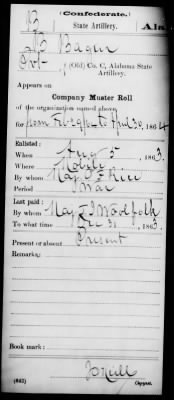 (Confederate.)
B State Artillery. Ala
J B Bagen
Pvt, (Old) Co. C, Alabama State
Artillery.
Appears on
Company Muster Roll
of the organization named above,
for from to April 30, 1864
Enlisted:
When Aug 5, 1863.
Where Mobile
By whom Maj. Rice
Period War
Last paid:
By whom Maj Woolfolk
To what time Dec 31, 1863.
Present or absent Present
Remarks:
Book mark:
(642) Copyist.